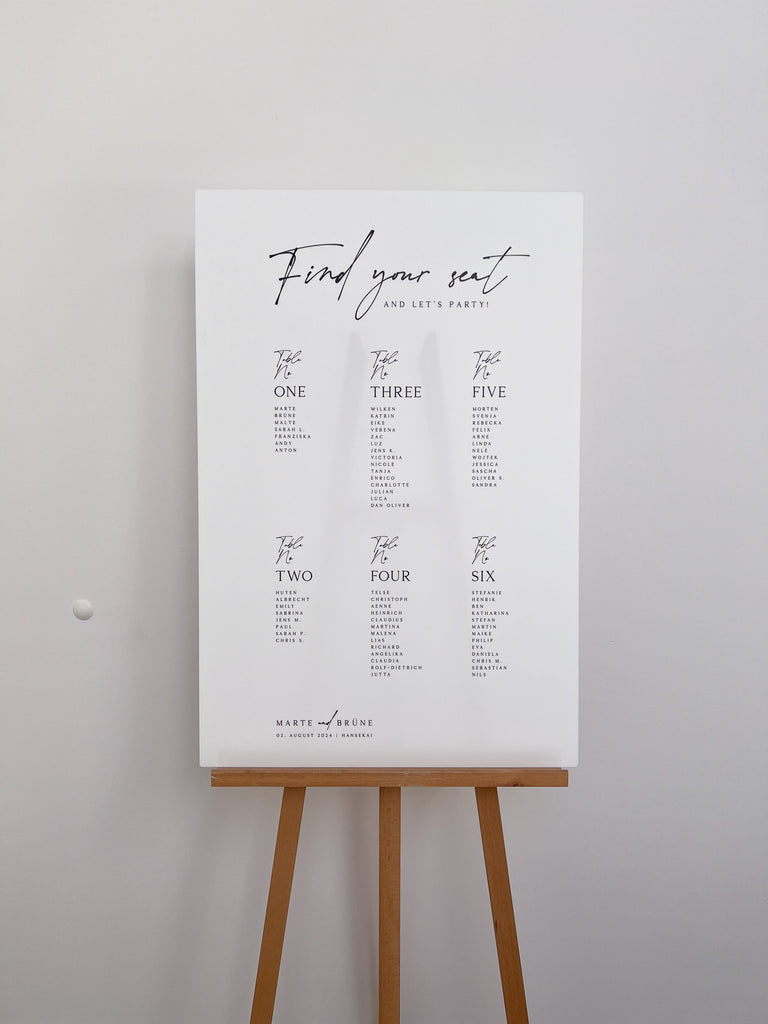 Find your seat
AND LET'S PARTY!
Table
No
ONE
MARTE
BRÜNE
MALTE
SARAH L.
FRANZISKA
ANDY
ANTON
Table
No
TWO
HUYEN
ALBRECHT
EMILY
SABRINA
JENS M.
PAUL
SARAH P.
CHRIS S.
Table
No
THREE
WILKEN
KATRIN
EIKE
VERENA
ZAC
LUZ
JENS K.
VICTORIA
NICOLE
TANJA
ENRICO
CHARLOTTE
JULIAN
LUCA
DAN OLIVER
Table
No
FOUR
TELSE
CHRISTOPH
AENNE
HEINRICH
CLAUDIUS
MARTINA
MALENA
LIAS
RICHARD
ANGELIKA
CLAUDIA
ROLF-DIETRICH
JUTTA
Table
No
FIVE
MORTEN
SVENJA
REBECKA
FELIX
ARNE
LINDA
NELE
WOJTEK
JESSICA
SASCHA
OLIVER S.
SANDRA
Table
No
SIX
STEFANIE
HENRIK
BEN
KATHARINA
STEFAN
MARTIN
MAIKE
PHILIP
EVA
DANIELA
CHRIS M.
SEBASTIAN
NILS
MARTE and BRÜNE
02. AUGUST 2024 | HANSEKAI